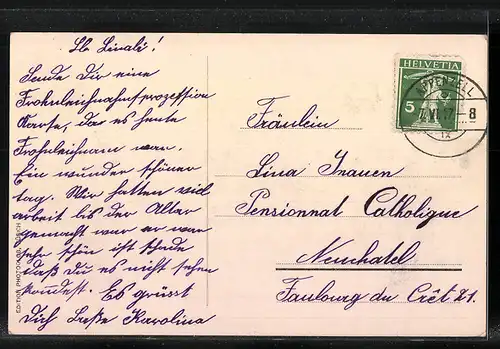 Lb Linali!
Sende Dir eine
Frohnleichnahmsprozession
Karte, dar es heute
Frohnleichnam war.
Ein wunder schöner
tag. Wir hatten viel
arbeit bs der Altar
gemacht war er war
sehr schön ist schade
daß du es nicht sehen
konndest. Es grüsst
Dich Karolina
HELVETIA
5
APPENZELL
7. VI. 17. 8
IX
Fräulein
Lina Inauen
Pensionnat Catholique
Neuchatel
Faubourg du Crêt 21.
EDITION PHOTOGLOB, ZÜRICH